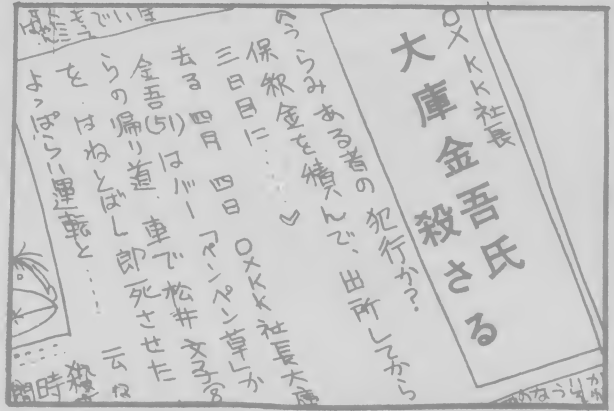 ○×KK社長
大庫金吾氏
殺さる
うらみある者の犯行か?
保釈金を積んで、出所してから
三日目に…… ♡
去る四月四日 ○×KK社長大庫
金吾(51)はバー「ペンペン草」か
らの帰り道、車で松井文子(8
をはねとばし即死させた
よっぱらい運転と…!
云わ
殺
時間
までいま